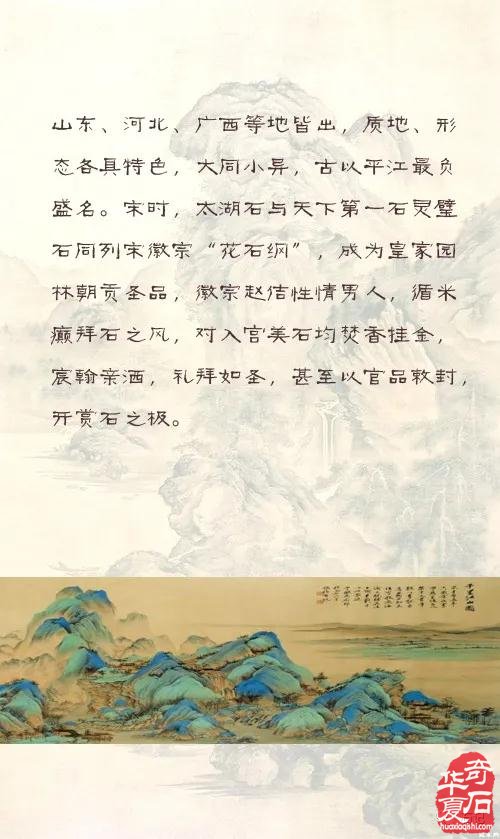 山东、河北、广西等地皆出，质地、形
态各具特色，大同小异，古以平江最负
盛名。宋时，太湖石与天下第一石灵璧
石同列宋徽宗“花石纲”，成为皇家园
林朝贡圣品，徽宗赵佶性情男人，循米
癫拜石之风，对入宫美石均焚香挂金，
宸翰亲洒，礼拜如圣，甚至以官品敕封，
开赏石之极。
千里江山图
华夏奇石
huaxiaqishi.com